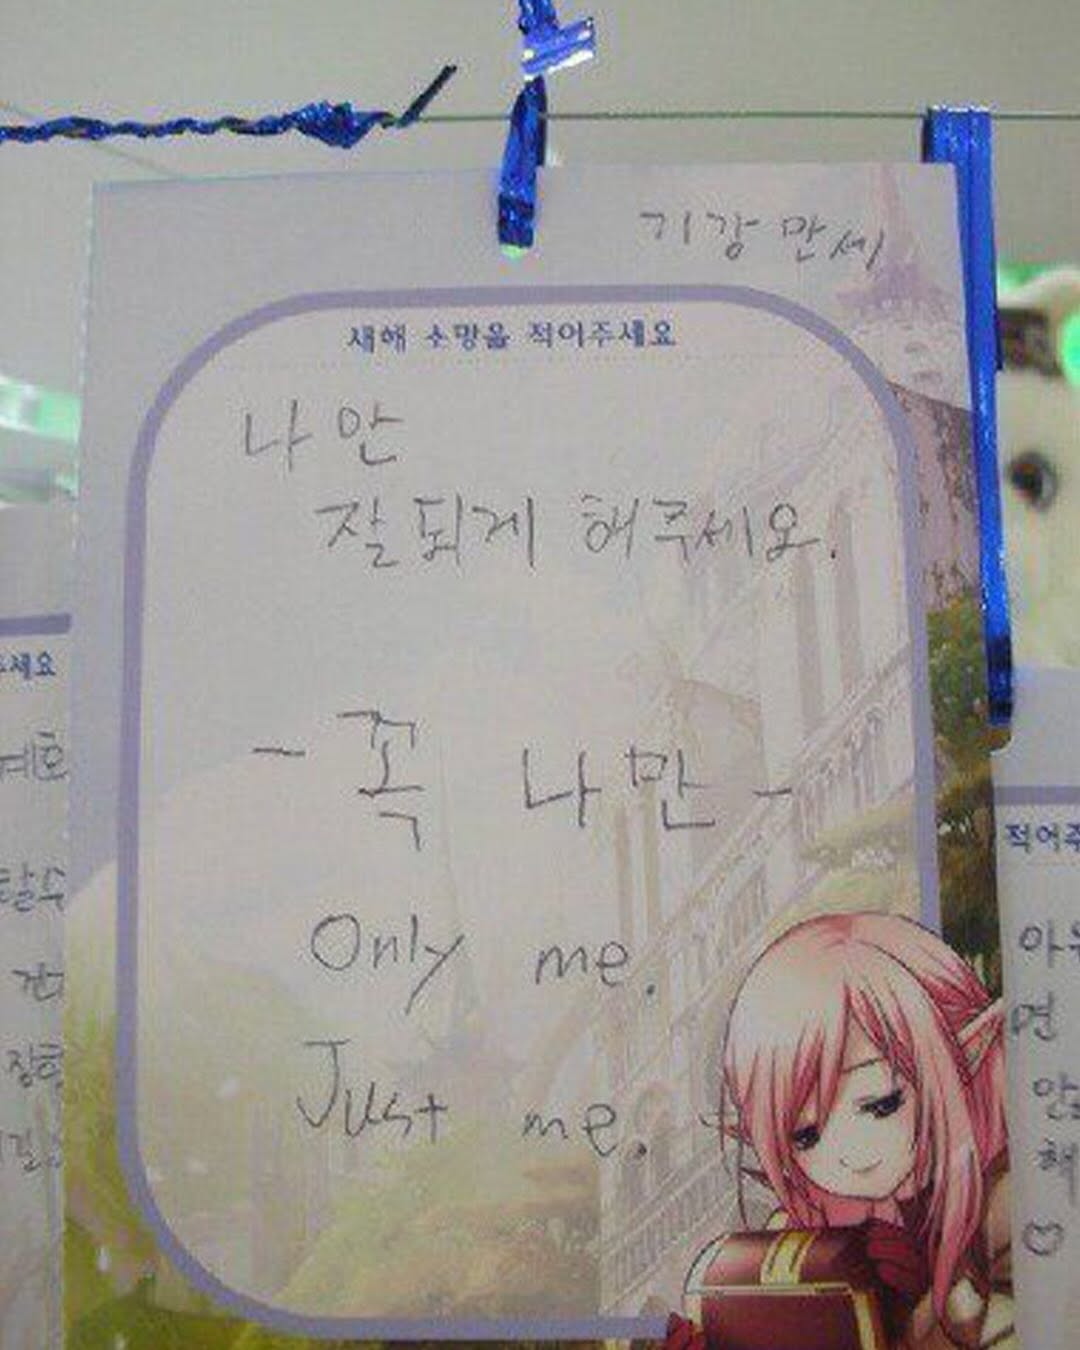 기강만세
새해 소망을 적어주세요
나 안
잘 되게 해주세요.
- 꼭 나만 -
Only me.
Just me.
세요
계효
탈수
적어주
아우
면
♡